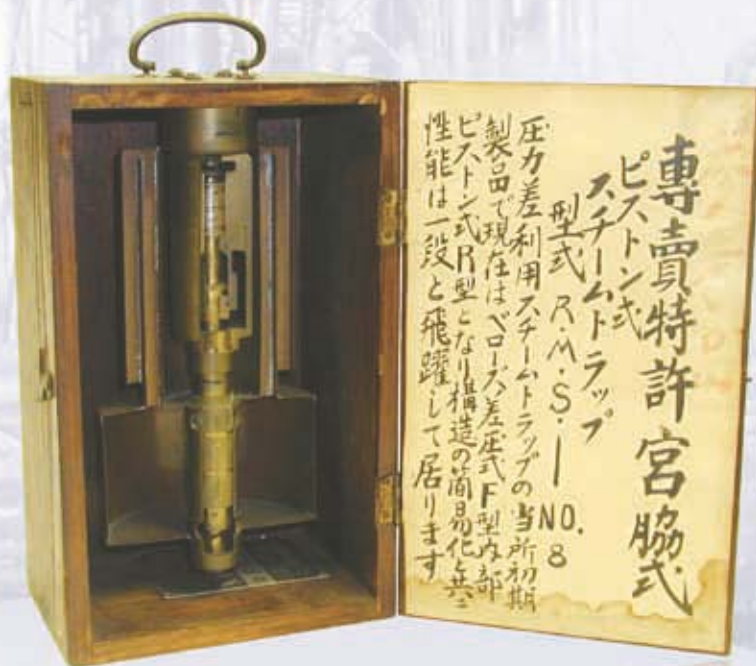 専賣特許宮脇式
ピストン式
スチームトラップ
型式 R.M.S.1 NO.8
圧力差利用スチームトラップの当所初期
製品で現在はベローズ差圧式F型内部
ピストン式R型となり構造の簡易化と共ニ
性能は一段と飛躍して居ります